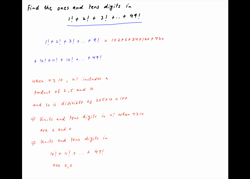 Find the ones and tens digits in
1! + 2! + 3! + ... + 49!
1! + 2! + ... + 9! = 1+2+6+24+120+720
+ 10! + 11! + ... + 49!
when n ≥ 10, n! includes a
product of 2, 5 and 10
and so is divisible by 2×5×10 = 100
⇒ Units and tens digits in n! when n≥10
are 0 and 0
⇒ Units and tens digits in
10! + 11! + ... + 49!
are 0,0